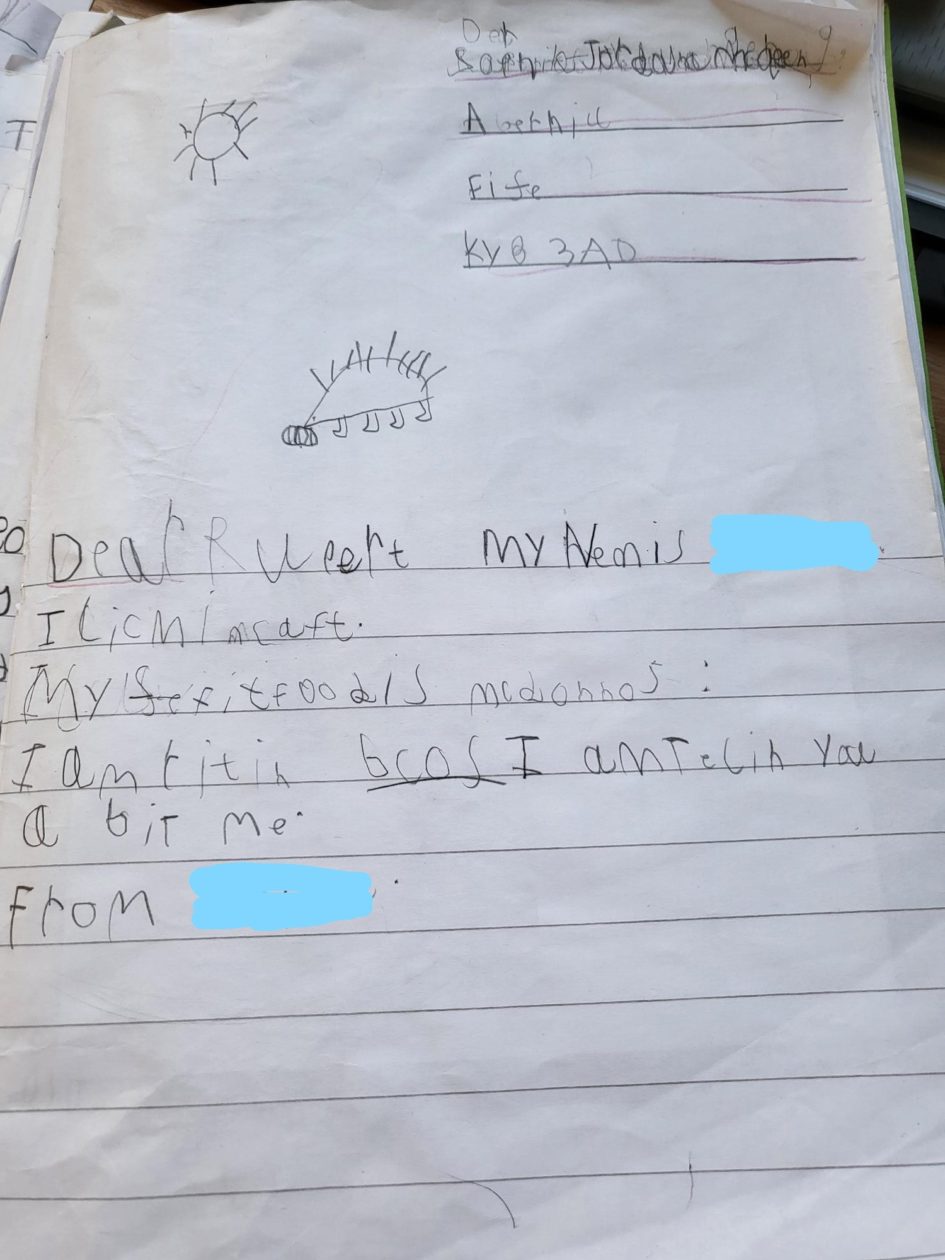 Aberhill
Fife
KY8 3AD
Dear Rueert My Nem is
I lic Mincaft.
My fexit food is mcdonnos.
I am ritin bcos I am Telin you
a bit me.
From